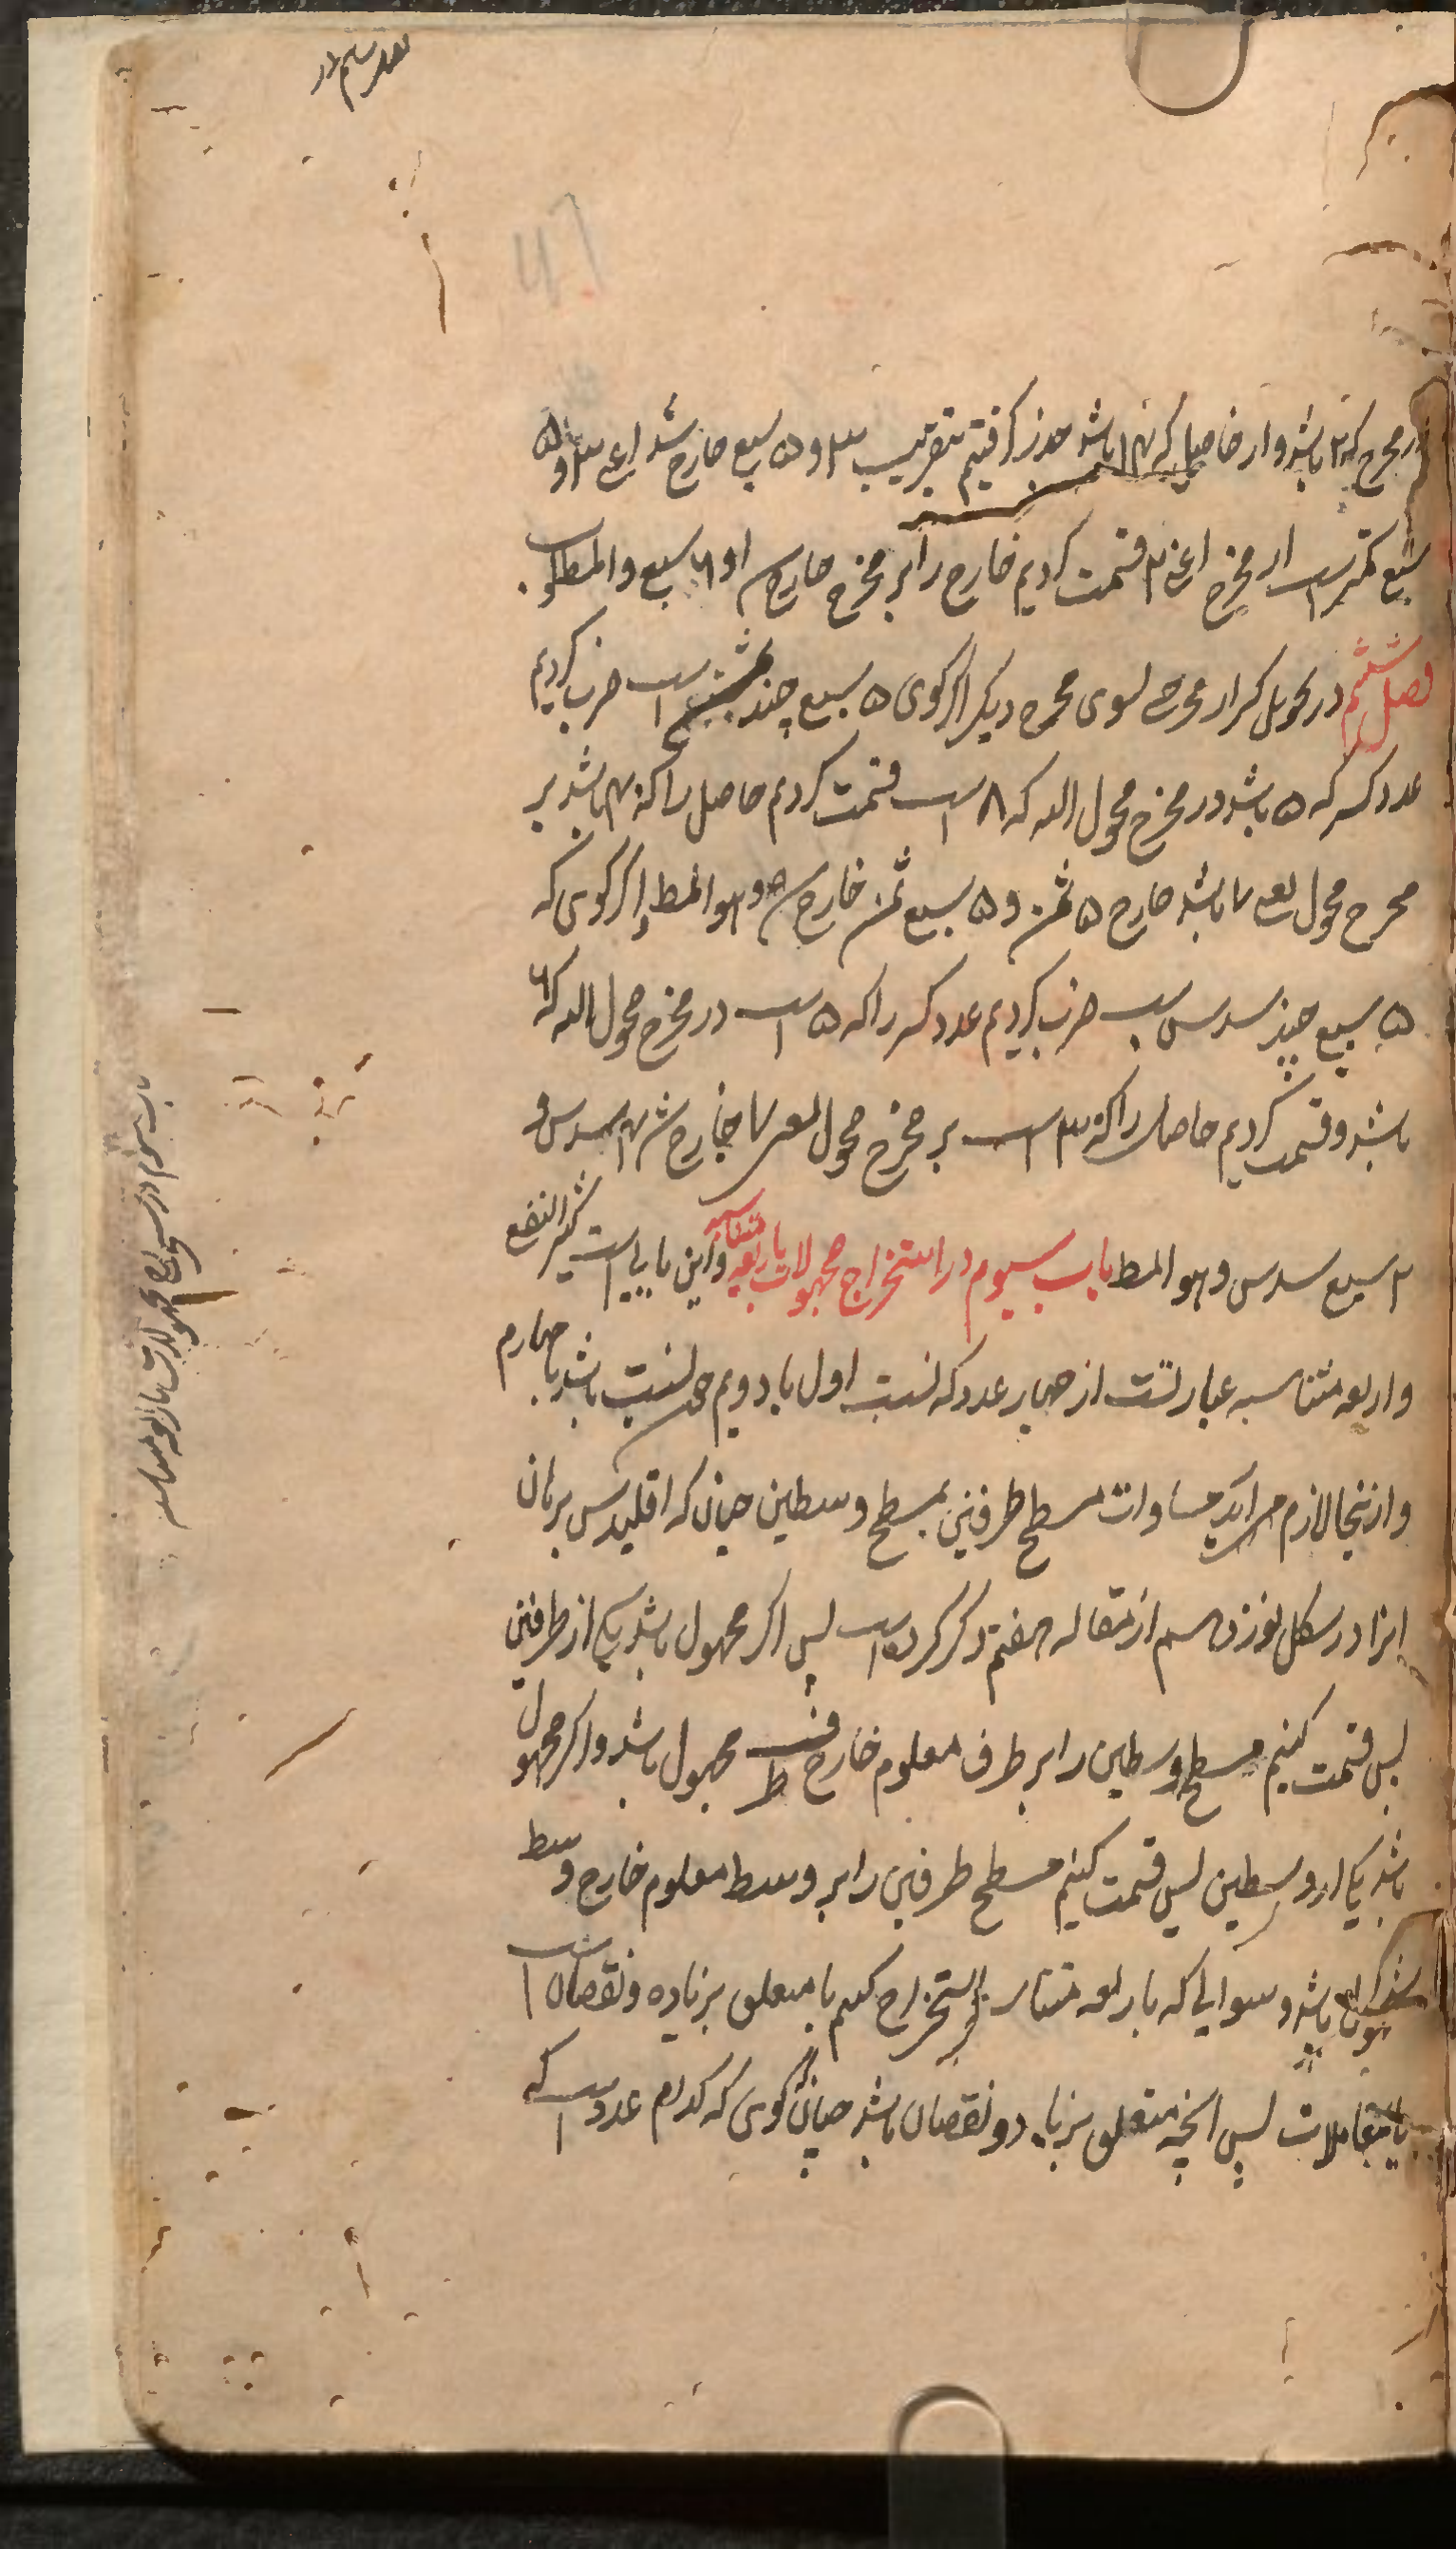 در مخرج که ۲ باشد و از حاصل که ۱۴ باشد جذر گرفتیم بتقریب ۳ و ۵ سبع خارج شد اعنی ۳ و ۵
سبع کمتر است از مخرج اعنی ۲ قسمت کردیم خارج را بر مخرج خارج ۱ و ۶ سبع و المط
فصل ششم در تحویل کسر از مخرجی بسوی مخرج دیگر اگر گوی ۵ سبع چند ثمن است ضرب کردیم
عدد کسر که ۵ باشد در مخرج محول الیه که ۸ است قسمت کردیم حاصل را که ۴۰ باشد بر
مخرج محول یعنی ۷ باشد خارج ۵ ثمن و ۵ سبع ثمن خارج وهو المط و اگر گوی که
۵ سبع چند سدس است ضرب کردیم عدد کسر را که ۵ است در مخرج محول الیه که ۶
باشد و قسمت کردیم حاصل را که ۳۰ است بر مخرج محول یعنی ۷ خارج شد ۴ سدس و
۲ سبع سدس وهو المط باب سیوم در استخراج مجهولات باربعه متناسبه و این بابیست کثیر النفع
و اربعه متناسبه عبارتست از چهار عدد که نسبت اول با دویم چون نسبت باشد با چهارم
و ازینجا لازم می آید مساوات مسطح طرفین بمسطح وسطین چنان که اقلیدس برهان
انرا در شکل نوزدهم از مقاله هفتم ذکر کرده است پس اگر مجهول باشد یکی از طرفین
پس قسمت کنیم مسطح وسطین را بر طرف معلوم خارج طرف مجهول باشد و اگر مجهول
باشد یکی از وسطین پس قسمت کنیم مسطح طرفین را بر وسط معلوم خارج وسط
باشد و سوالی که باربعه متناسبه استخراج کنیم یا متعلق بزیاده و نقصان است
یا بمعاملات پس انچه متعلق بزیاد و نقصان باشد چنان گوی که کدام عدد است که
باب سیوم در استخراج مجهولات باربعه متناسبه